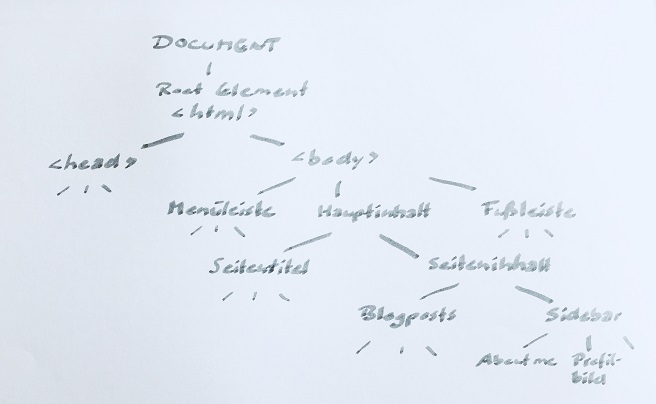 DOCUMENT
Root Element
<html>
<head>
<body>
Menüleiste
Hauptinhalt
Fußleiste
Seitentitel
Seiteninhalt
Blogposts
Sidebar
About me
Profil-
bild